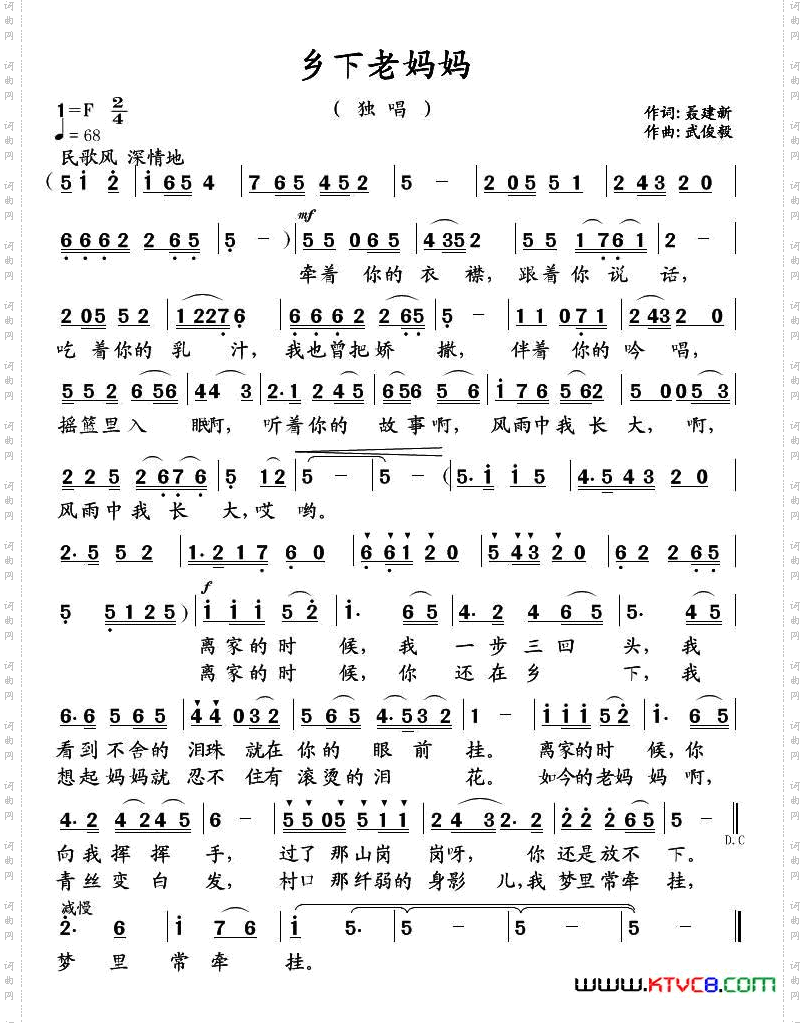 乡下老妈妈
（独唱）
1=F 2/4
♩=68
作词:聂建新
作曲:武俊毅
民歌风 深情地
(5 1 2 | 1 6 5 4 | 7 6 5 4 5 2 | 5 - | 2 0 5 5 1 | 2 4 3 2 0 |
mf
6 6 6 2 2 6 5 | 5 - ) | 5 5 0 6 5 | 4 3 5 2 | 5 5 1 7 6 1 | 2 - |
牵着 你的 衣 襟， 跟着 你 说 话，
2 0 5 5 2 | 1 2 2 7 6 | 6 6 6 2 2 6 5 | 5 - | 1 1 0 7 1 | 2 4 3 2 0 |
吃 着你的 乳 汁， 我也曾把娇 撒， 伴着 你的 吟 唱，
5 5 2 6 5 6 | 4 4 3 | 2· 1 2 4 5 | 6 5 6 5 6 | 1 7 6 5 6 2 | 5 0 0 5 3 |
摇篮里入 眠啊， 听着你的 故事啊， 风雨中我 长 大， 啊，
2 2 5 2 6 7 6 | 5 1 2 | 5 - | 5 - ( | 5· 1 1 5 | 4· 5 4 3 2 0 |
风雨中我 长 大，哎 哟。
2· 5 5 2 | 1· 2 1 7 6 0 | 6 6 1 2 0 | 5 4 3 2 0 | 6 2 2 6 5 |
f
5 5 1 2 5 ) | 1 1 1 5 2 | 1· 6 5 | 4· 2 4 6 5 | 5· 4 5 |
离家的时 候，我 一步三回 头，我
离家的时 候，你 还在乡 下，我
6· 6 5 6 5 | 4 4 0 3 2 | 5 6 5 4· 5 3 2 | 1 - | 1 1 1 5 2 | 1· 6 5 |
看到不舍的 泪珠 就在 你的 眼 前 挂。 离家的时 候，你
想起妈妈就 忍不 住有 滚烫的泪 花。 如今的老妈 妈啊，
4· 2 4 2 4 5 | 6 - | 5 5 0 5 5 1 1 | 2 4 3 2· 0 | 2 2 2 6 5 | 5 - ‖
D.C
向我 挥 挥 手， 过了 那山岗 岗呀， 你 还是放不 下。
青丝 变 白 发， 村口 那纤弱的 身影 儿，我 梦里常牵 挂，
减慢
2· 6 | 1 7 6 | 1 5· | 5· | 5· | 5· ‖
梦 里 常牵 挂。
www.KTVC8.com